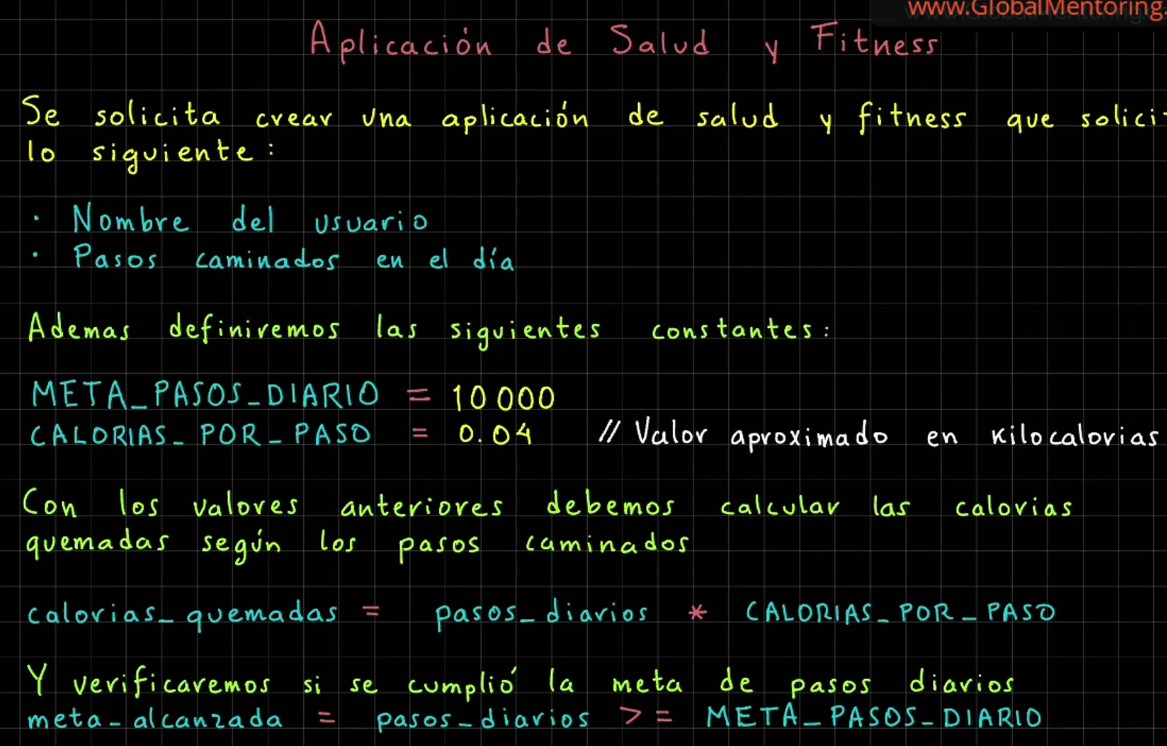 www.GlobalMentoring.
Aplicación de Salud y Fitness
Se solicita crear una aplicación de salud y fitness que solici
lo siguiente:
· Nombre del usuario
· Pasos caminados en el día
Ademas definiremos las siguientes constantes:
META_PASOS_DIARIO = 10000
CALORIAS_POR_PASO = 0.04 // Valor aproximado en kilocalorias
Con los valores anteriores debemos calcular las calorias
quemadas según los pasos caminados
calorias_quemadas = pasos_diarios * CALORIAS_POR_PASO
Y verificaremos si se cumplió la meta de pasos diarios
meta_alcanzada = pasos_diarios >= META_PASOS_DIARIO